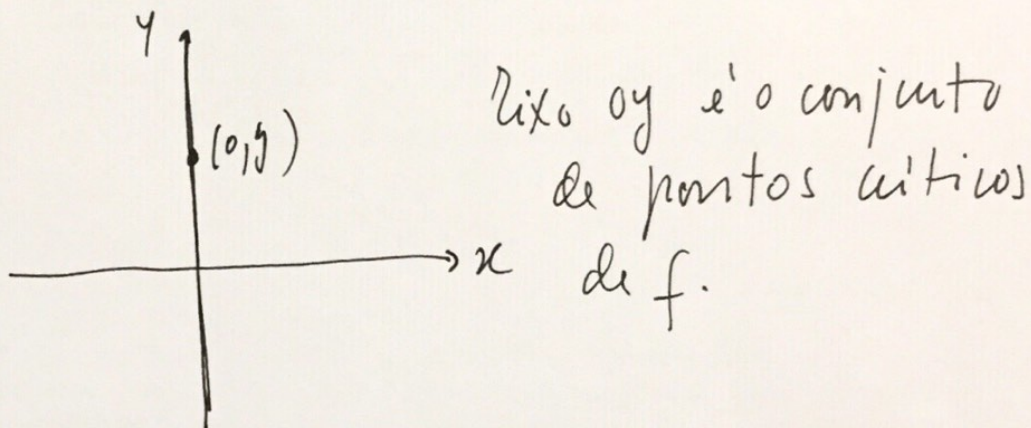 y
(0,y)
x
Eixo oy é o conjunto
de pontos críticos
de f.